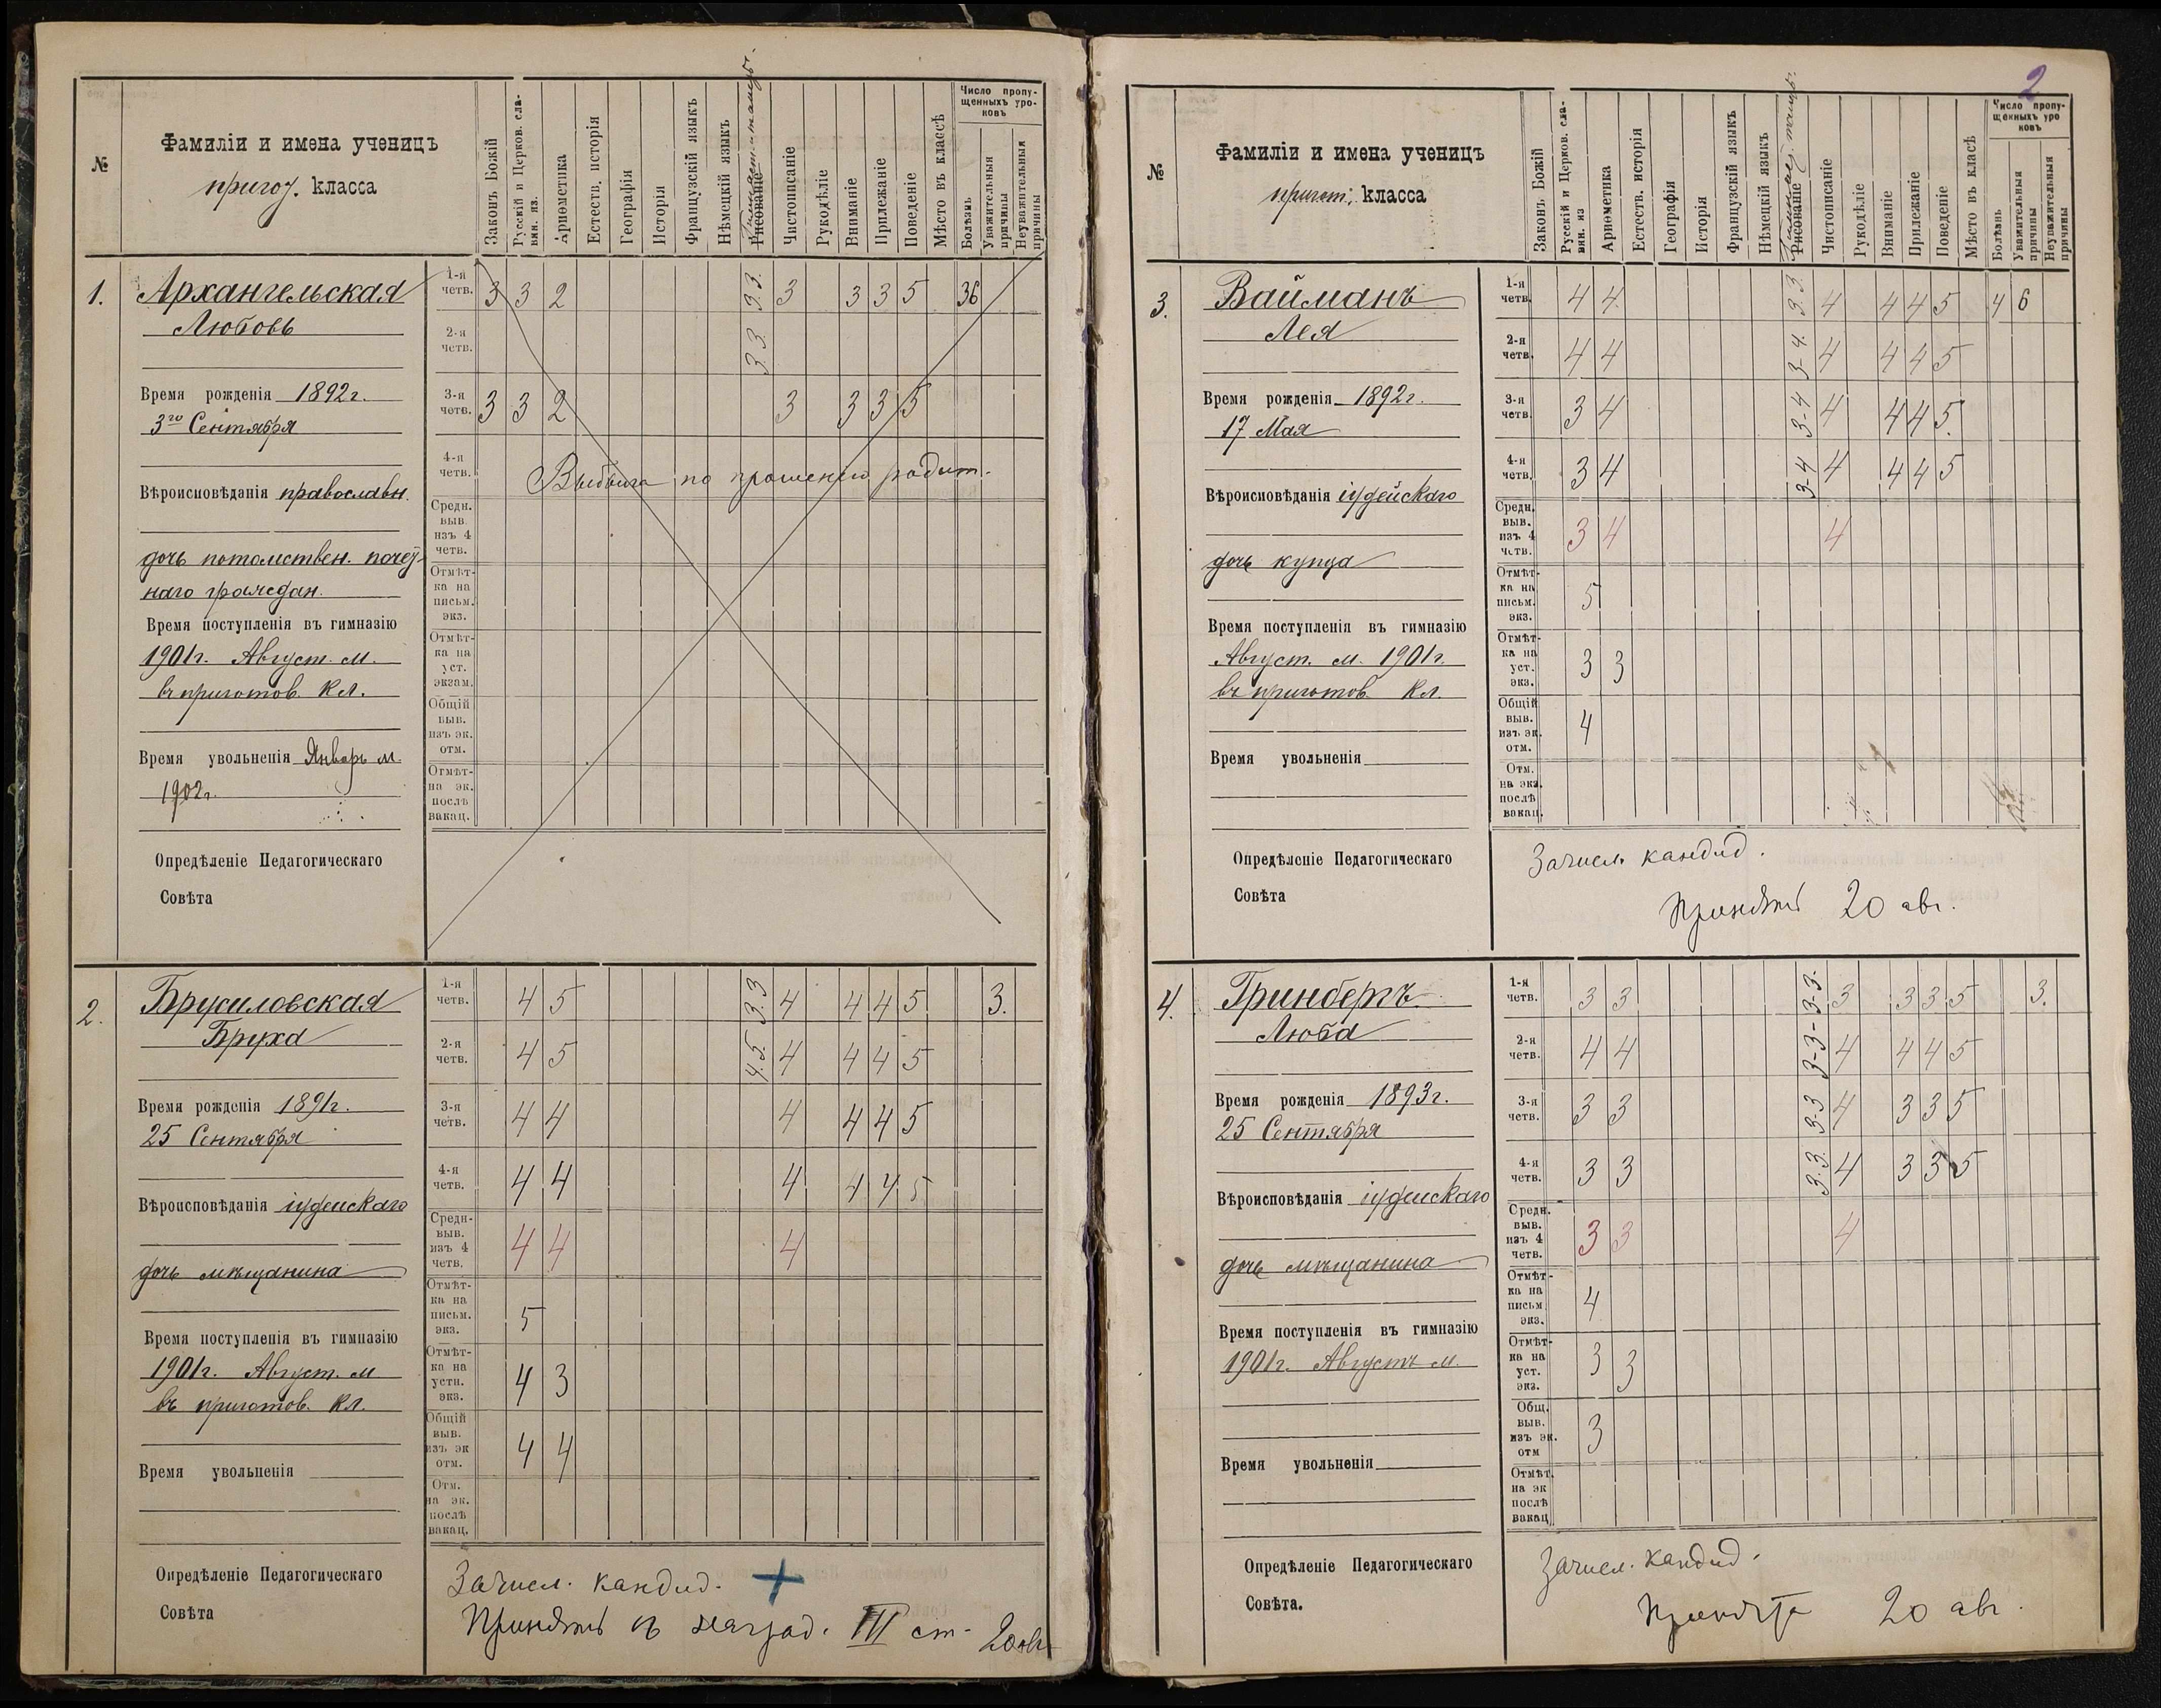 №
Фамиліи и имена ученицъ
пригот. класса
Законъ Божій
Русскій и Церков. сла-
вян. яз.
Ариѳметика
Естеств. исторія
Географія
Исторія
Французскій языкъ
Нѣмецкій языкъ
Рисованіе
Чистописаніе
Рукодѣліе
Вниманіе
Прилежаніе
Поведеніе
Мѣсто въ классѣ
Число пропу-
щенныхъ уро-
ковъ
Болѣзнь
Уважительныя
причины
Неуважительныя
причины
1.
Архангельская
Любовь
Время рожденія 1892 г.
3го Сентября
Вѣроисповѣданія православн.
дочь потомствен. почет-
наго граждан.
Время поступленія въ гимназію
1901 г. Август. м.
въ приготов. кл.
Время увольненія Январь м.
1902 г.
Опредѣленіе Педагогическаго
Совѣта
1-я четв. 3 3 2 3.3. 3 3 3 5 36
2-я четв. 3.3
3-я четв. 3 3 2 3 3 3 5
4-я четв. Выбыла по прошенію родит.
Средн. выв. изъ 4 четв.
Отмѣт-ка на письм. экз.
Отмѣт-ка на уст. экзам.
Общій выв. изъ эк. отм.
Отмѣт- на эк. послѣ вакац.
2.
Брусиловская
Бруха
Время рожденія 1891 г.
25 Сентября
Вѣроисповѣданія іудейскаго
дочь мѣщанина
Время поступленія въ гимназію
1901 г. Август. м
въ приготов. кл.
Время увольненія
Опредѣленіе Педагогическаго
Совѣта
1-я четв. 4 5 3.3 4 4 4 5 3.
2-я четв. 4 5 4.5. 4 4 4 5
3-я четв. 4 4 4 4 4 5
4-я четв. 4 4 4 4 4 5
Средн- выв. изъ 4 четв. 4 4 4
Отмѣт-ка на письм. экз. 5
Отмѣт-ка на устн. экз. 4 3
Общій выв. изъ эк отм. 4 4
Отм. на эк. послѣ вакац.
Зачисл. кандид. +
Принята съ наград. III ст. 20 авг
2
№
Фамиліи и имена ученицъ
пригот. класса
Законъ Божій
Русскій и Церков. сла-
вян. яз
Ариѳметика
Естеств. исторія
Географія
Исторія
Французскій языкъ
Нѣмецкій языкъ
Рисованіе
Чистописаніе
Рукодѣліе
Вниманіе
Прилежаніе
Поведеніе
Мѣсто въ класѣ
Число пропу-
щенныхъ уро
ковъ
Болѣзнь
Уважительныя
причины
Неуважительныя
причины
3.
Вайманъ
Лея
Время рожденія 1892 г.
17 Мая
Вѣроисповѣданія іудейскаго
дочь купца
Время поступленія въ гимназію
Август. м. 1901 г.
въ приготов. кл.
Время увольненія
Опредѣленіе Педагогическаго
Совѣта
1-я четв. 4 4 3.3. 4 4 4 5 4 6
2-я четв. 4 4 3-4. 4 4 4 5
3-я четв. 3 4 3-4 4 4 4 5.
4-я четв. 3 4 3-4 4 4 4 5
Средн. выв. изъ 4 четв. 3 4 4
Отмѣт-ка на письм. экз. 5
Отмѣт-ка на уст. экз. 3 3
Общій выв. изъ эк. отм. 4
Отм. на экз. послѣ вакац.
Зачисл. кандид.
Принята 20 авг.
4.
Гринбергъ
Люба
Время рожденія 1893 г.
25 Сентября
Вѣроисповѣданія іудейскаго
дочь мѣщанина
Время поступленія въ гимназію
1901 г. Августъ м.
Время увольненія
Опредѣленіе Педагогическаго
Совѣта.
1-я четв. 3 3 3-3. 3 3 3 5 3.
2-я четв. 4 4 3-3- 4 4 4 5
3-я четв. 3 3 3-3 4 3 3 5
4-я четв. 3 3 3.3. 4 3 3 5
Средн. выв. изъ 4 четв. 3 3 4
Отмѣт-ка на письм экз. 4
Отмѣт-ка на уст. экз. 3 3
Общ. выв. изъ эк. отм 3
Отмѣт. на эк послѣ вакац
Зачисл. кандид.
Принята 20 авг.